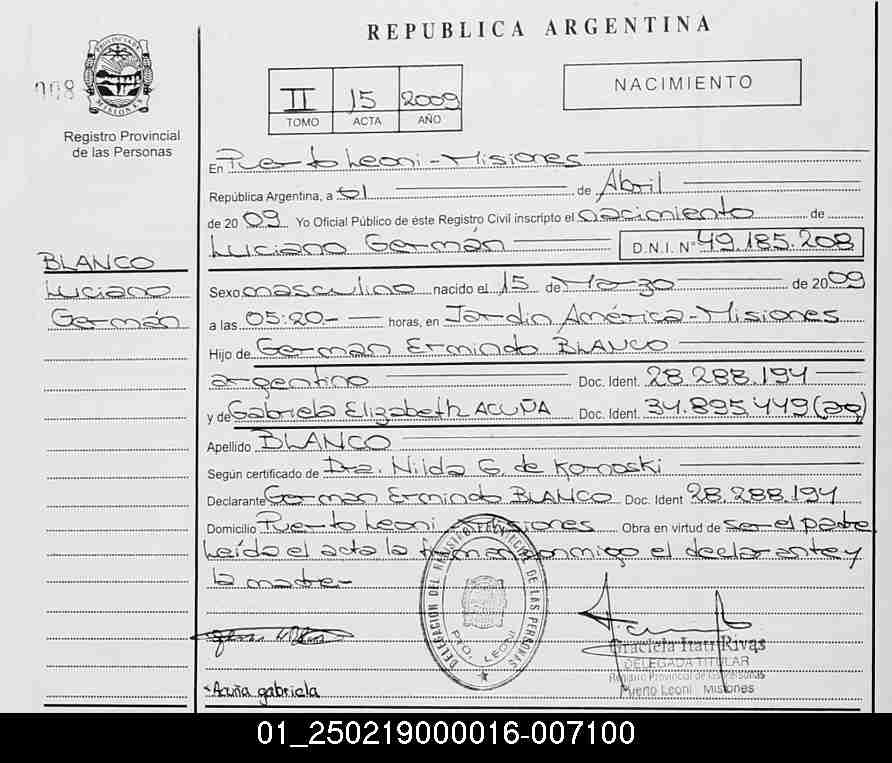 REPUBLICA ARGENTINA
PROVINCIA DE
MISIONES
008
Registro Provincial
de las Personas
II 15 2009
TOMO ACTA AÑO
NACIMIENTO
En Puerto Leoni - Misiones
República Argentina, a 01 de Abril
de 2009 Yo Oficial Público de éste Registro Civil inscripto el nacimiento de
Luciano Germán D.N.I. Nº 49.185.208
BLANCO
Luciano
Germán
Sexo masculino nacido el 15 de Marzo de 2009
a las 05:20.- horas, en Jardin América - Misiones
Hijo de German Ermindo BLANCO
argentino Doc. Ident. 28.288.194
y de Gabriela Elizabeth ACUÑA Doc. Ident. 34.895.449 (ag)
Apellido BLANCO
Según certificado de Dra. Nilda G. de Kornoski
Declarante German Ermindo BLANCO Doc. Ident 28.288.194
Domicilio Puerto Leoni - Misiones Obra en virtud de ser el padre
Leída el acta la firman conmigo el declarante y
la madre.-
DELEGACION DEL REGISTRO PROVINCIAL DE LAS PERSONAS
PTO. LEONI
Graciela Itatí Rivas
DELEGADA TITULAR
Registro Provincial de las Personas
Puerto Leoni Misiones
Acuña gabriela
01_250219000016-007100